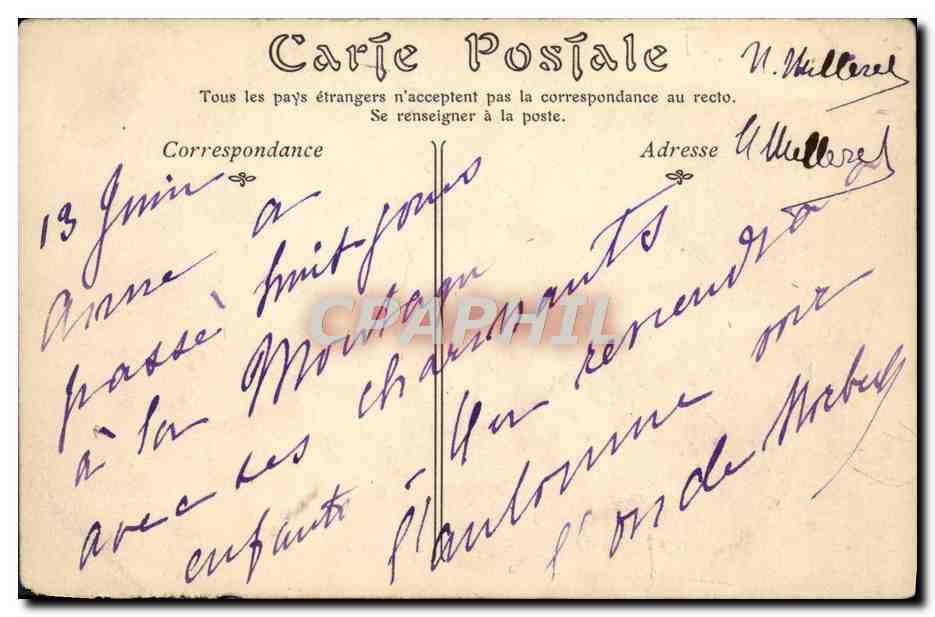 Carte Postale
Tous les pays étrangers n'acceptent pas la correspondance au recto.
Se renseigner à la poste.
Correspondance
Adresse
13 Juin
Anne a
passé huit jours
à la Montagne
avec ses charmants
enfants - 
reviendra
l'automne voir
l'onde
CPAPHIL